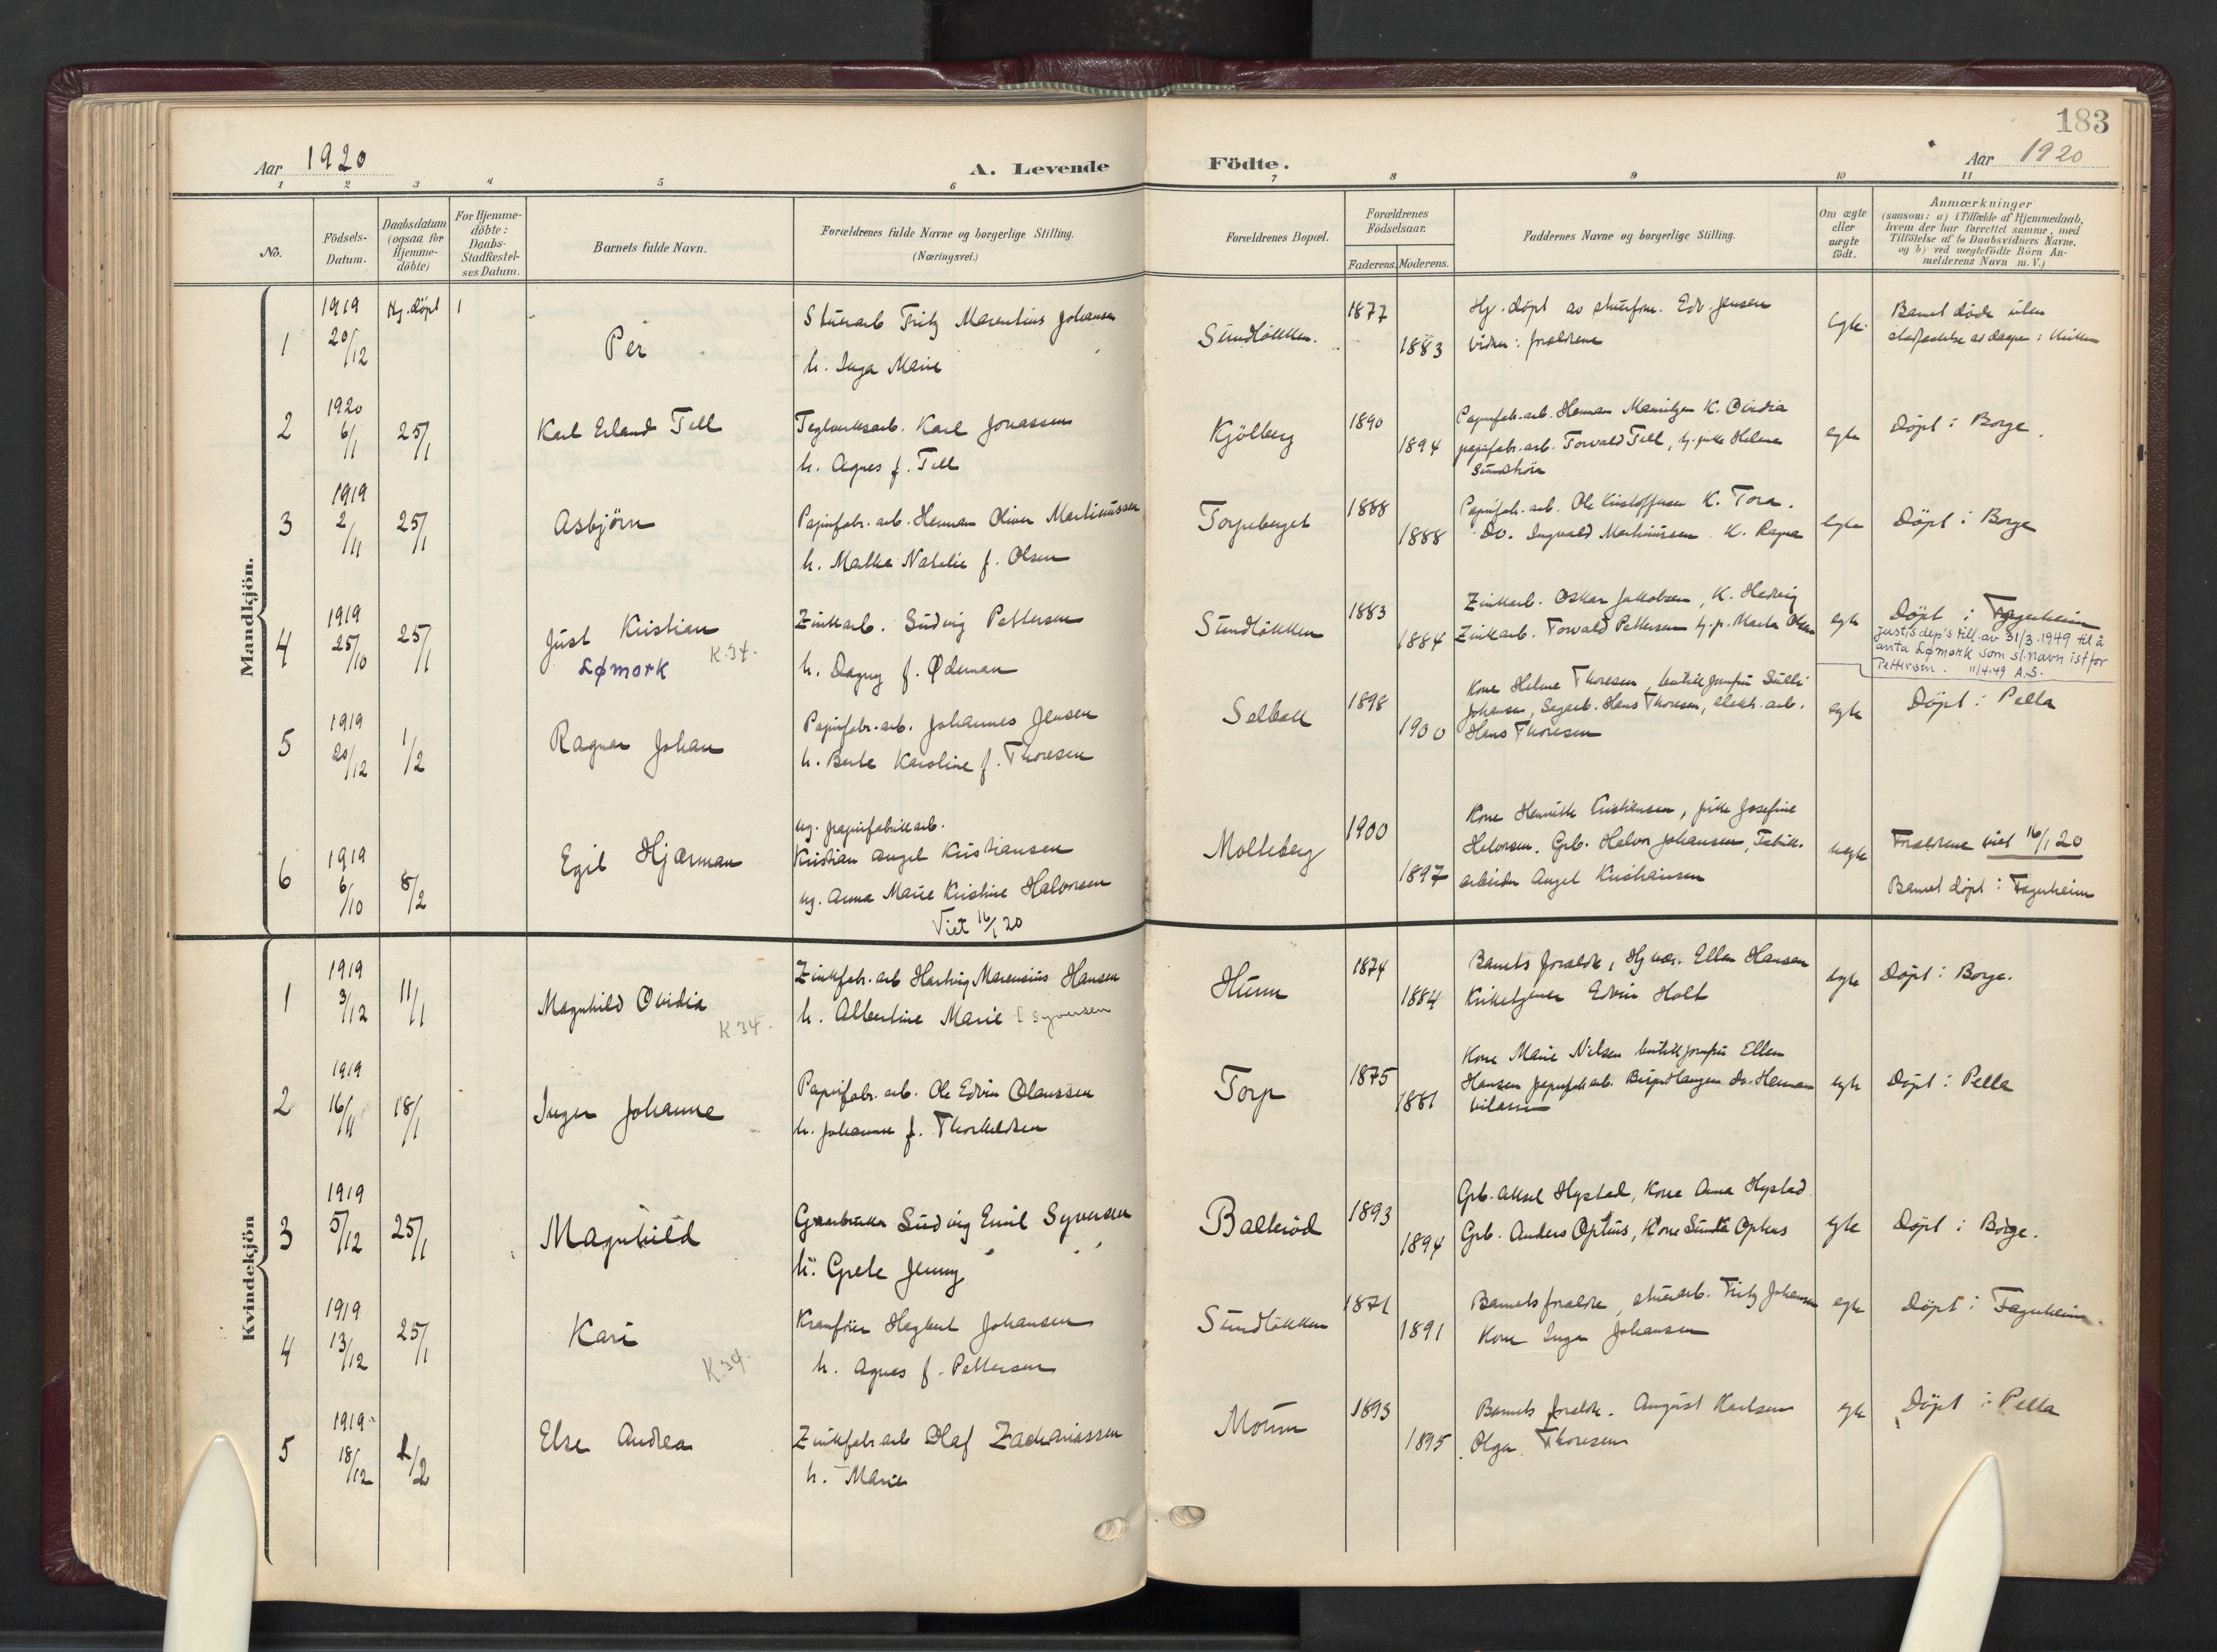 183
Aar 1920
A. Levende
Födte.
Aar 1920
1 2 3 4 5 6 7 8 9 10 11
No.
Födsels-
Datum.
Daabsdatum
(ogsaa for
Hjemme-
döbte)
For Hjemme-
döbte:
Daabs-
Stadfæstel-
ses Datum.
Barnets fulde Navn.
Forældrenes fulde Navne og borgerlige Stilling.
(Næringsvei.)
Forældrenes Bopæl.
Forældrenes
Födselsaar.
Faderens. Moderens.
Faddernes Navne og borgerlige Stilling.
Om ægte
eller
uægte
födt.
Anmærkninger
(saasom: a) i Tilfælde af Hjemmedaab,
hvem der har forrettet samme, med
Tilföielse af to Daabsvidners Navne.
og b) ved uægtefödte Börn An-
melderens Navn m. V.)
Mandkjön.
1
1919
20/12
Hj. døpt
Per
Stuerarb Fritz Marentius Johansen
h. Inga Marie
Sundløkken.
1877
1883
Hj. døpt av stuerfm. Edv. Jensen
Vidner: forældrene
egte
Barnet døde uten
stadfæstelse av daapen i kirken
2
1920
6/1
25/1
Karl Erland Tell
Teglverksarb. Karl Jonassen
h. Agnes f. Tell
Kjölberg
1890
1894
Papirfabr. arb. Herman Mauritzen K. Ovidia
papirfabr. arb. Torvald Tell, tj. pike Helene
egte
Døpt i Borge.
3
1919
2/11
25/1
Asbjörn
Papirfabr. arb. Herman Oliver Martinussen
h. Mathea Natalie f. Olsen
Torpeberget
1888
1888
Papirfab. arb. Ole Kristoffersen K. Tora.
Do. Ingvald Martinussen K. Ragna
egte
Døpt i Borge
4
1919
25/10
25/1
Just Kristian
Lømork
K.34.
Zinkarb. Ludvig Pettersen
h. Dagny f. Ødeman
Sundløkken
1883
1884
Zinkarb. Oskar Jakobsen, K. Hedvig
Zinkarb. Torvald Pettersen tj. p. Marta Olsen
egte
Døpt i Fagerheim
Justisdep's till. av 31/3.1949 til å
anta Lømork som sl.navn istfor
Pettersen. 11/4.49 A.S.
5
1919
20/12
1/2
Ragnar Johan
Papirfabr. arb. Johannes Jensen
h. Berte Karoline f. Thoresen
Selbak
1898
1900
Kone Helene Thoresen, butikjomfru Sulli
Johansen, Sagarb. Hans Thoresen, elektr. arb.
Hans Thoresen
egte
Døpt i Pella
6
1919
6/10
8/2
Egil Hjarman
ug. papirfabrikarb.
Kristian Angel Kristiansen
ug. Anna Marie Kristine Halvorsen
Viet 16/1 20
Molleberg
1900
1897
Kone Henrikke Kristiansen, pike Josefine
Halvorsen. Grb. Halvor Johansen, Fabrik-
arbeider Angel Kristiansen
uegte
Forældrene viet 16/1 20
Barnet døpt i Fagerheim
Kvindekjön
1
1919
3/12
11/1
Magnhild Ovidia
K.34.
Zinkfabr. arb Hartvig Marensius Hansen
h. Albertine Marie f. Syversen
Hunn
1874
1884
Barnets forældre, Hj vær. Ellen Hansen
Kirketjener Edvin Holt
egte
Døpt i Borge.
2
1919
16/11
18/1
Inger Johanne
Papirfabr. arb. Ole Edvin Olaussen
h. Johanne f. Thorkildsen
Torp
1875
1881
Kone Marie Nilsen butikjomfru Ellen
Hansen papirfab arb. Birger Haugen do. Herman
Nilsen
egte
Døpt i Pella
3
1919
5/12
25/1
Magnhild
Gaardbruker Ludvig Emil Syversen
h. Grete Jenny
Balkeröd
1893
1894
Grb. Aksel Hystad, Kone Anna Hystad
Grb. Anders Ophus, Kone Ophus
egte
Døpt i Borge.
4
1919
13/12
25/1
Kari
K.34.
Kranfører Hagbart Johansen
h. Agnes f. Pettersen
Sundløkken
1871
1891
Barnets forældre, stuerarb. Fritz Johansen
Kone Inga Johansen
egte
Døpt i Fagerheim.
5
1919
18/12
1/2
Else Andrea
Zinkfabr. arb Olaf Zachariassen
h. Marie
Moum
1893
1895
Barnets forældre. August Karlsen
Olga Thoresen
egte
Døpt i Pella